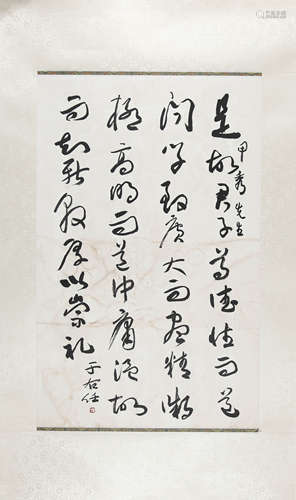 甲秀先生
是故君子尊德性而道
問學致廣大而盡精微
極高明而道中庸溫故
而知新敦厚以崇礼
于右任